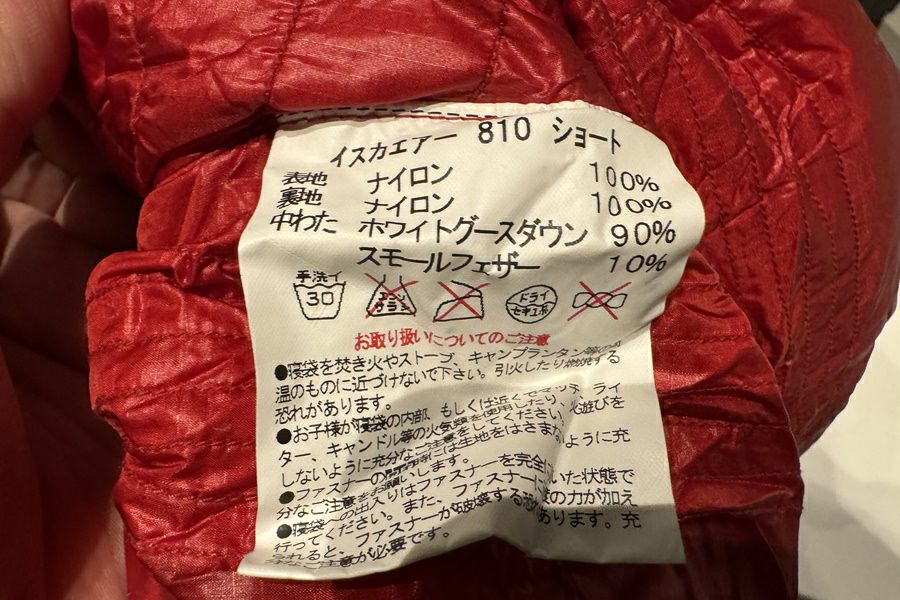 イスカエアー 810 ショート
表地 ナイロン 100%
裏地 ナイロン 100%
中わた ホワイトグースダウン 90%
スモールフェザー 10%
手洗イ
30
エンソ
サラシ
ドライ
セキユ系
お取り扱いについてのご注意
●寝袋を焚き火やストーブ、キャンプランタン等の
温のものに近づけないで下さい。引火したり燃焼する
恐れがあります。
●お子様が寝袋の内部、もしくは近くでマッチ、ライ
ター、キャンドル等の火気類を使用したり、火遊びを
しないように充分なご注意をしてください。
●ファスナーの開閉時には生地をはさまないように充
分なご注意をお願いします。
●寝袋への出入りはファスナーを完全に いた状態で
行ってください。また、ファスナーに の力が加え
られると、ファスナーが破壊する恐れあります。充
分なご注意が必要です。